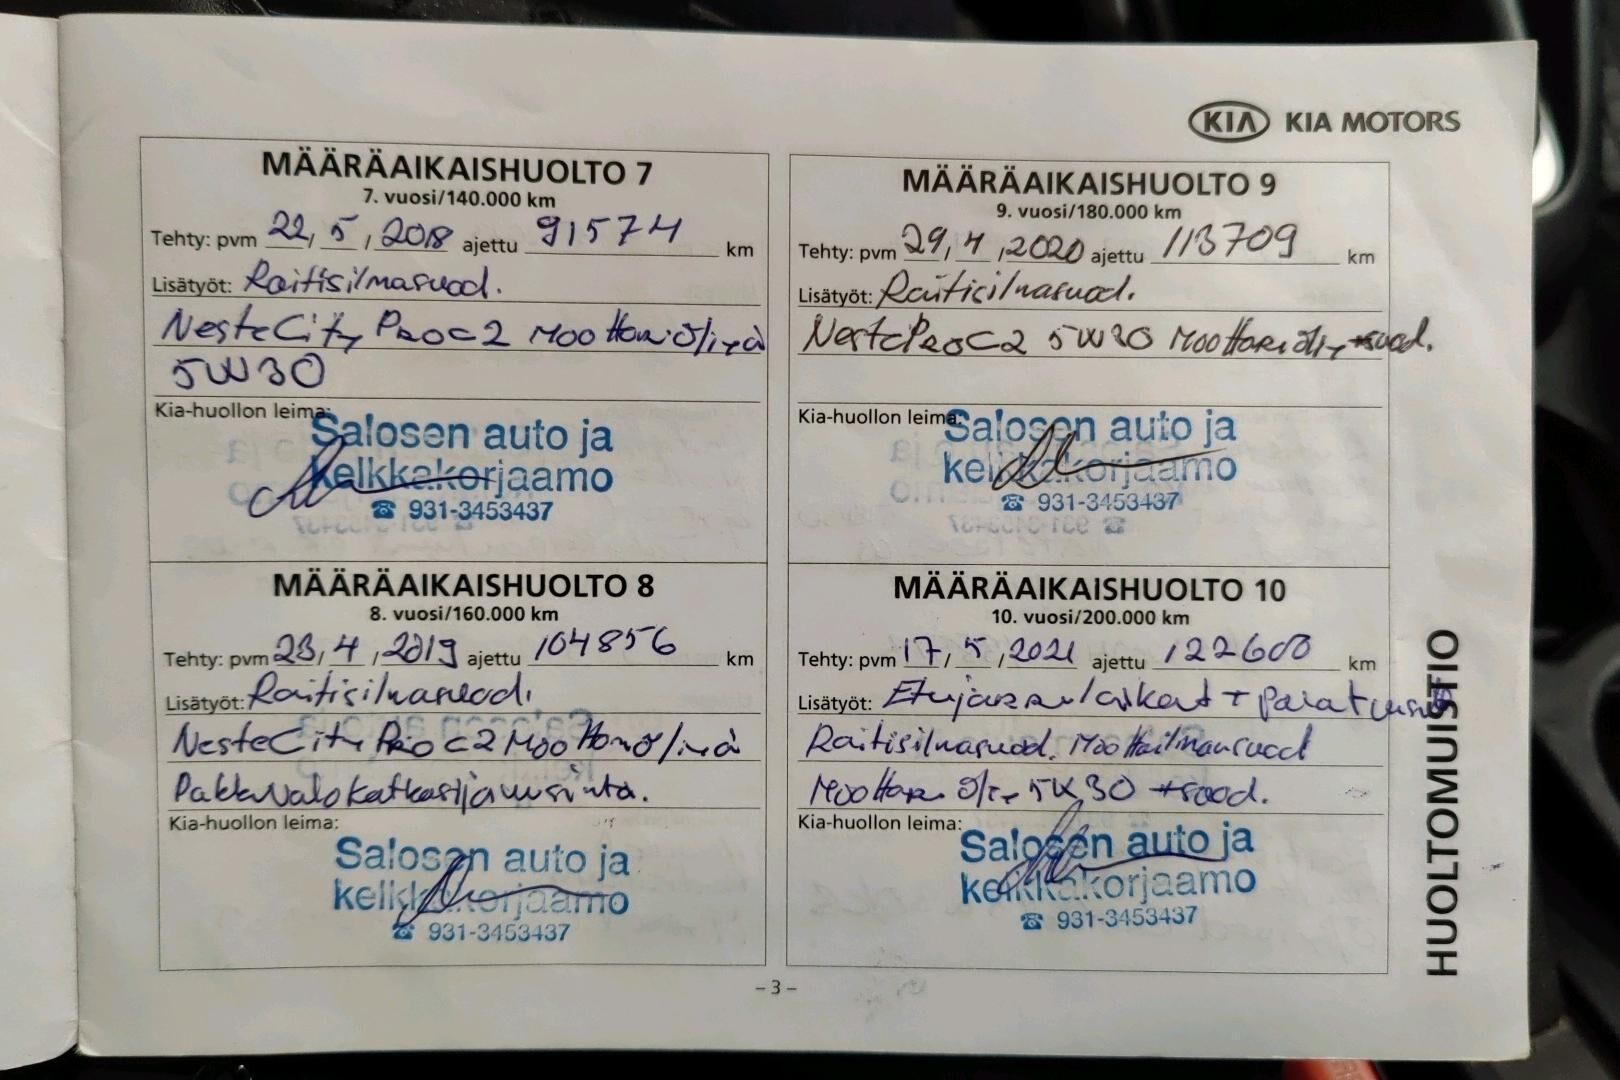 KIA KIA MOTORS
MÄÄRÄAIKAISHUOLTO 7
7. vuosi/140.000 km
Tehty: pvm 22, 5, 2018 ajettu 91574 km
Lisätyöt: Raitisilmasuod.
Neste City Pro C2 Moottoriöljyä
5W30
Kia-huollon leima:
Salosen auto ja
kelkkakorjaamo
☎ 931-3453437
MÄÄRÄAIKAISHUOLTO 8
8. vuosi/160.000 km
Tehty: pvm 23, 4, 2019 ajettu 104856 km
Lisätyöt: Raitisilmasuod.
Neste City Pro C2 Moottoriöljyä
Pakkivalo katkasija uusinta.
Kia-huollon leima:
Salosen auto ja
kelkkakorjaamo
☎ 931-3453437
MÄÄRÄAIKAISHUOLTO 9
9. vuosi/180.000 km
Tehty: pvm 29, 4, 2020 ajettu 113709 km
Lisätyöt: Raitisilmasuod.
Neste Pro C2 5W30 Moottoriöljy+suod.
Kia-huollon leima:
Salosen auto ja
kelkkakorjaamo
☎ 931-3453437
MÄÄRÄAIKAISHUOLTO 10
10. vuosi/200.000 km
Tehty: pvm 17, 5, 2021 ajettu 122600 km
Lisätyöt: Etujarrulaikat + palat
Raitisilmasuod. Moottoilmansuod
Moottori öljy 5W30 +suod.
Kia-huollon leima:
Salosen auto ja
kelkkakorjaamo
☎ 931-3453437
HUOLTOMUISTIO
– 3 –